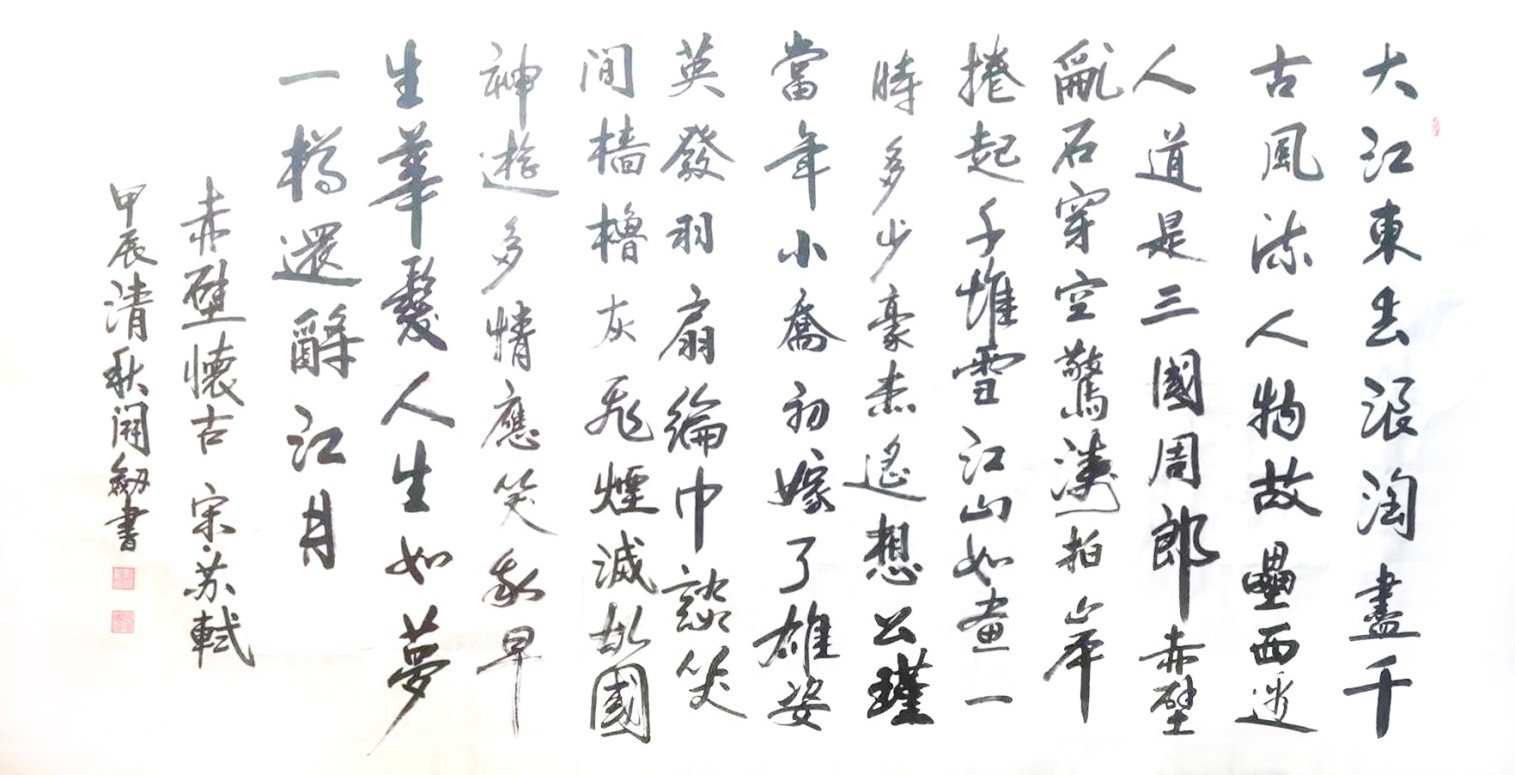 大江東去浪淘盡千
古風流人物故壘西邊
人道是三國周郎赤壁
亂石穿空驚濤拍岸
捲起千堆雪江山如畫一
時多少豪傑遙想公瑾
當年小喬初嫁了雄姿
英發羽扇綸巾談笑
間檣櫓灰飛煙滅故國
神遊多情應笑我早
生華髮人生如夢
一樽還酹江月
赤壁懷古 宋·苏軾
甲辰清秋開劍書